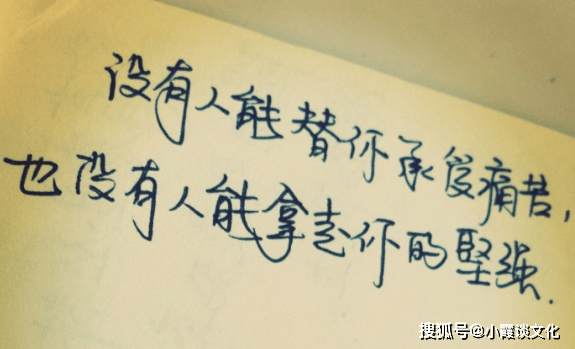 没有人能替你承受痛苦,
也没有人能拿走你的堅强.
搜狐号@小霞谈文化